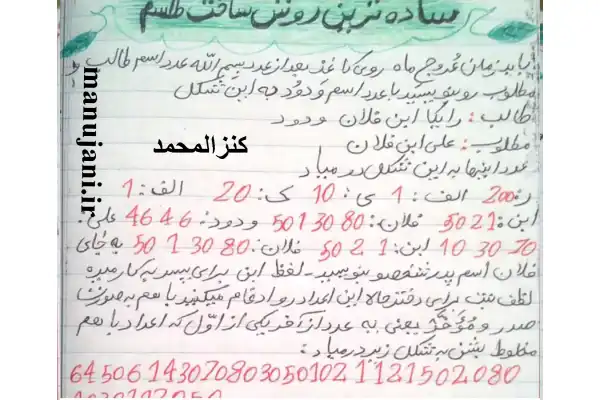 ساده ترین روش ساخت طلسم
باید زمان عُروج ماه روی کاغذ بعد از عدد بسم الله عدد اسم طالب و
مطلوب رو بنویسید با عدد اسم ودُود به این شکل
طالب: رایکا ابن فلان ودود
مطلوب: علی ابن فلان
کنز المحمد
manujani.ir
عدد اینها به این شکل در میاد
ر: 200 الف: 1 ی: 10 ک: 20 الف: 1
ابن: 5021 فلان: 5013080 ودود: 4646 علی:
10 30 70 ابن: 5021 فلان: 5013080 به جای
فلان اسم پدر شخص و بنویسید - لفظ ابن برای پسر به کار میره
لفظ بنت برای دختر حالا این اعداد رو ادغام میکنید با هم به صورت
صدر و مُؤَخَّر یعنی یه عدد از آخر یکی از اوّل که اعداد با هم
مخلوط بشن به شکل زیر در میاد:
64506143070803050102112150 2080